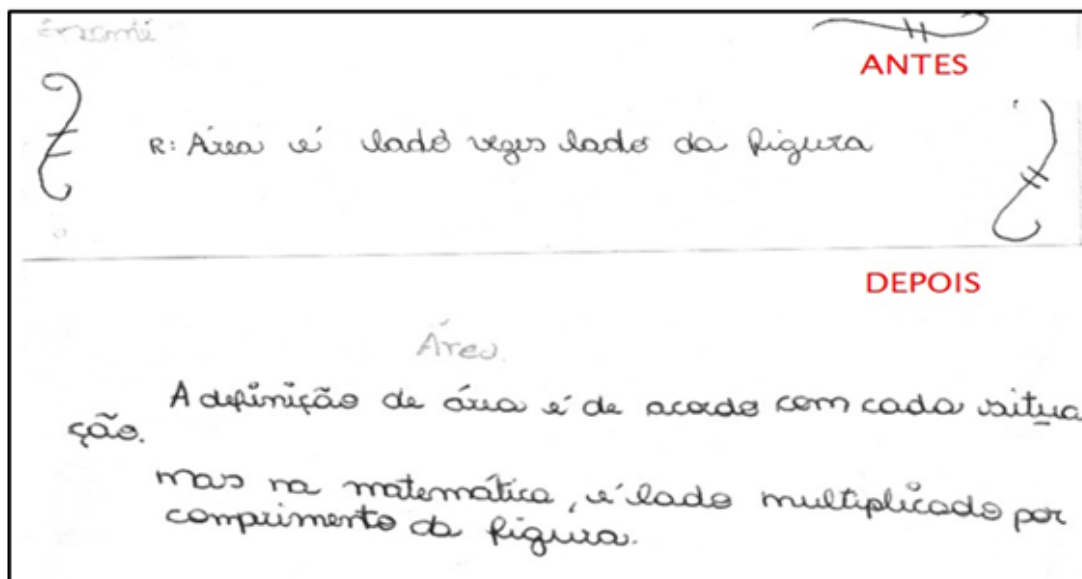 ANTES
R: Área é lado vezes lado da figura
DEPOIS
Área
A definição de área é de acordo com cada situa
ção.
mas na matemática, é lado multiplicado por
comprimento da figura.